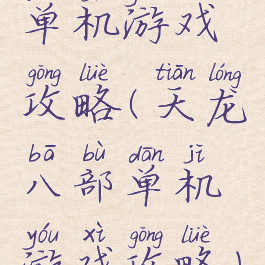 单机游戏
gōng lüè tiān lóng
攻略(天龙
bā bù dān jī
八部单机
yóu xì gōng lüè
游戏攻略)